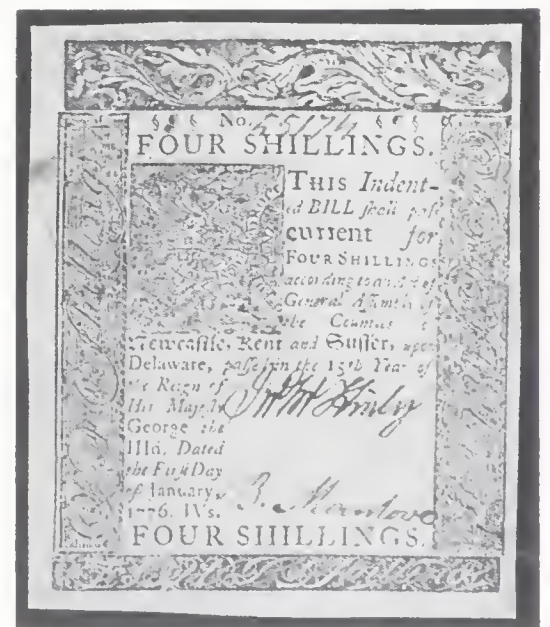 § § § No. 55124 § § §
FOUR SHILLINGS.
THIS Indent-
ed BILL ſhall paſs
current for
FOUR SHILLINGS
according to an Act of
General Aſſembly of
the Counties
Newcaſtle, Kent and Suſſex, upon
Delaware, paſſed in the 15th Year of
the Reign of
His Majeſty
George the
IIId. Dated
the Firſt Day
of January,
1776. IVs.
FOUR SHILLINGS.